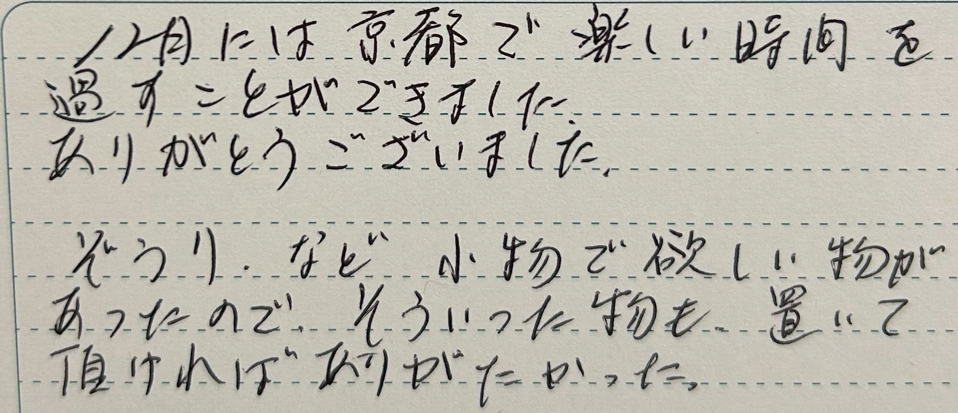 12月には京都で楽しい時間を
過すことができました。
ありがとうございました。
ぞうり、など 小物で欲しい物が
あったので、そういった物も、置いて
頂ければありがたかった。